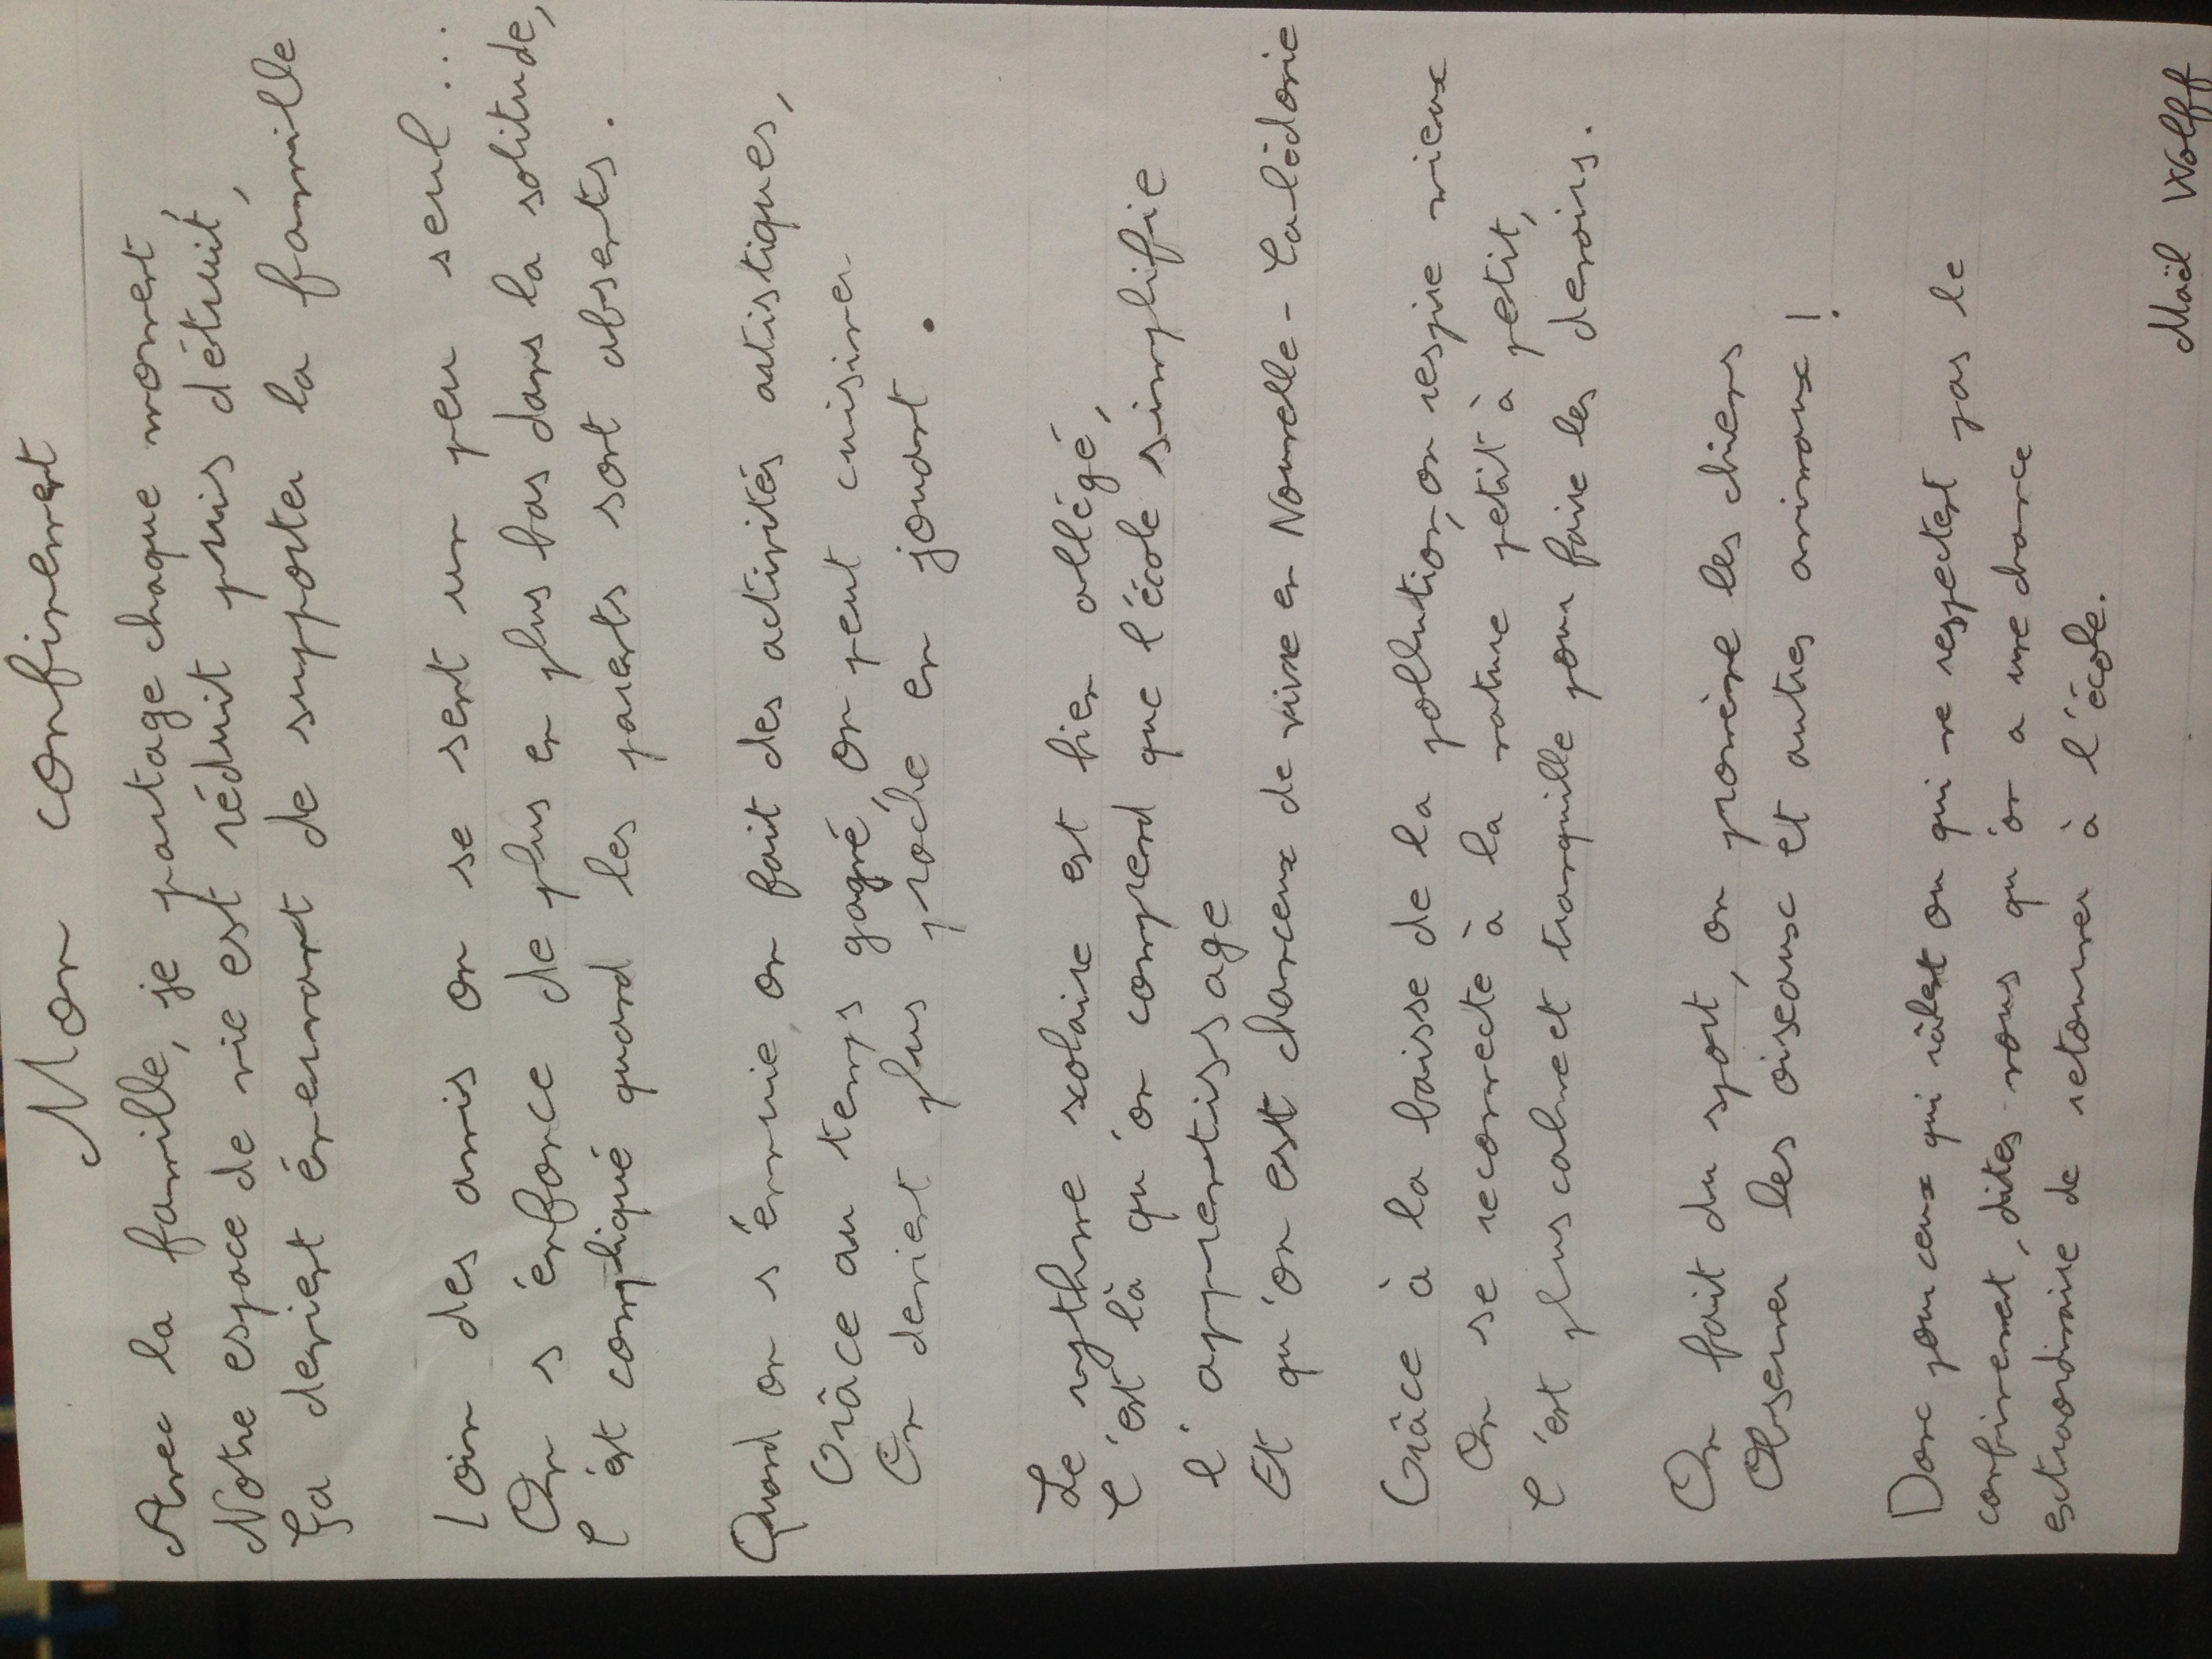 Mon confinement
Avec la famille, je partage chaque moment
Notre espace de vie est réduit puis détruit,
Ça devient énervant de supporter la famille
Loin des amis on se sent un peu seul...
On s'enfonce de plus en plus bas dans la solitude,
C'est compliqué quand les parents sont absents.
Quand on s'ennuie, on fait des activités artistiques,
Grâce au temps gagné, on peut cuisiner
On devient plus proche en jouant.
Le rythme scolaire est bien allégé,
C'est là qu'on comprend que l'école simplifie
l'apprentissage
Et qu'on est chanceux de vivre en Nouvelle-Calédonie
Grâce à la baisse de la pollution, on respire mieux
On se reconnecte à la nature petit à petit,
C'est plus calme et tranquille pour faire les devoirs.
On fait du sport, on promène les chiens
Observer les oiseaux et autres animaux !
Donc pour ceux qui râlent ou qui ne respectent pas le
confinement, dites-vous qu'on a une chance
extraordinaire de retourner à l'école.
Maël Wolff